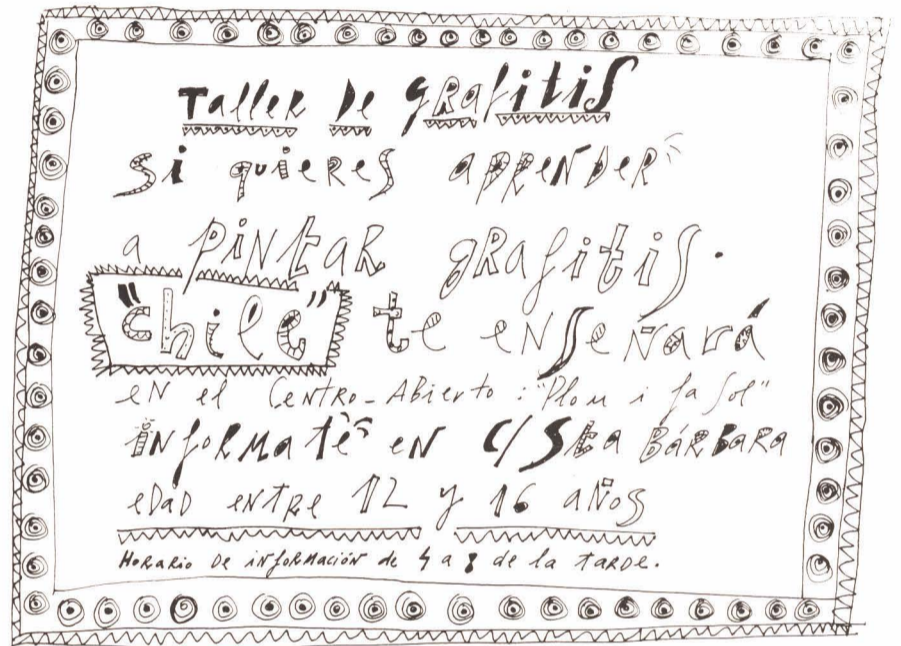 Taller De grafitis
si quieres aprender
a pintar grafitis.
"chile" te enseñará
en el Centro-Abierto: "Plou i fa Sol"
informaté en C/ Sta Bárbara
edad entre 12 y 16 años
Horario de información de 4 a 8 de la tarde.